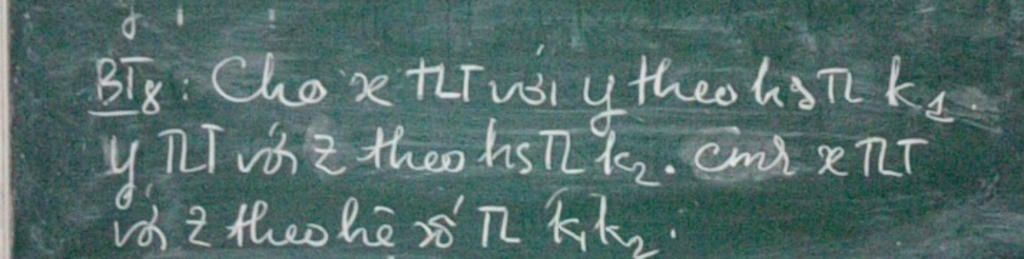 BT8: Cho x TLT với y theo hs TL k₁.
y TLT với z theo hs TL k₂. cmr x TLT
với z theo hệ số TL k₁k₂.